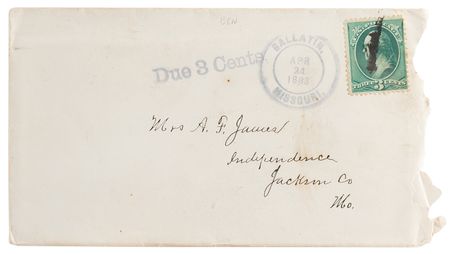 Due 3 Cents
GALLATIN,
APR
24
1883
MISSOURI.
3
Mrs A. F. James
Independence
Jackson Co
Mo.